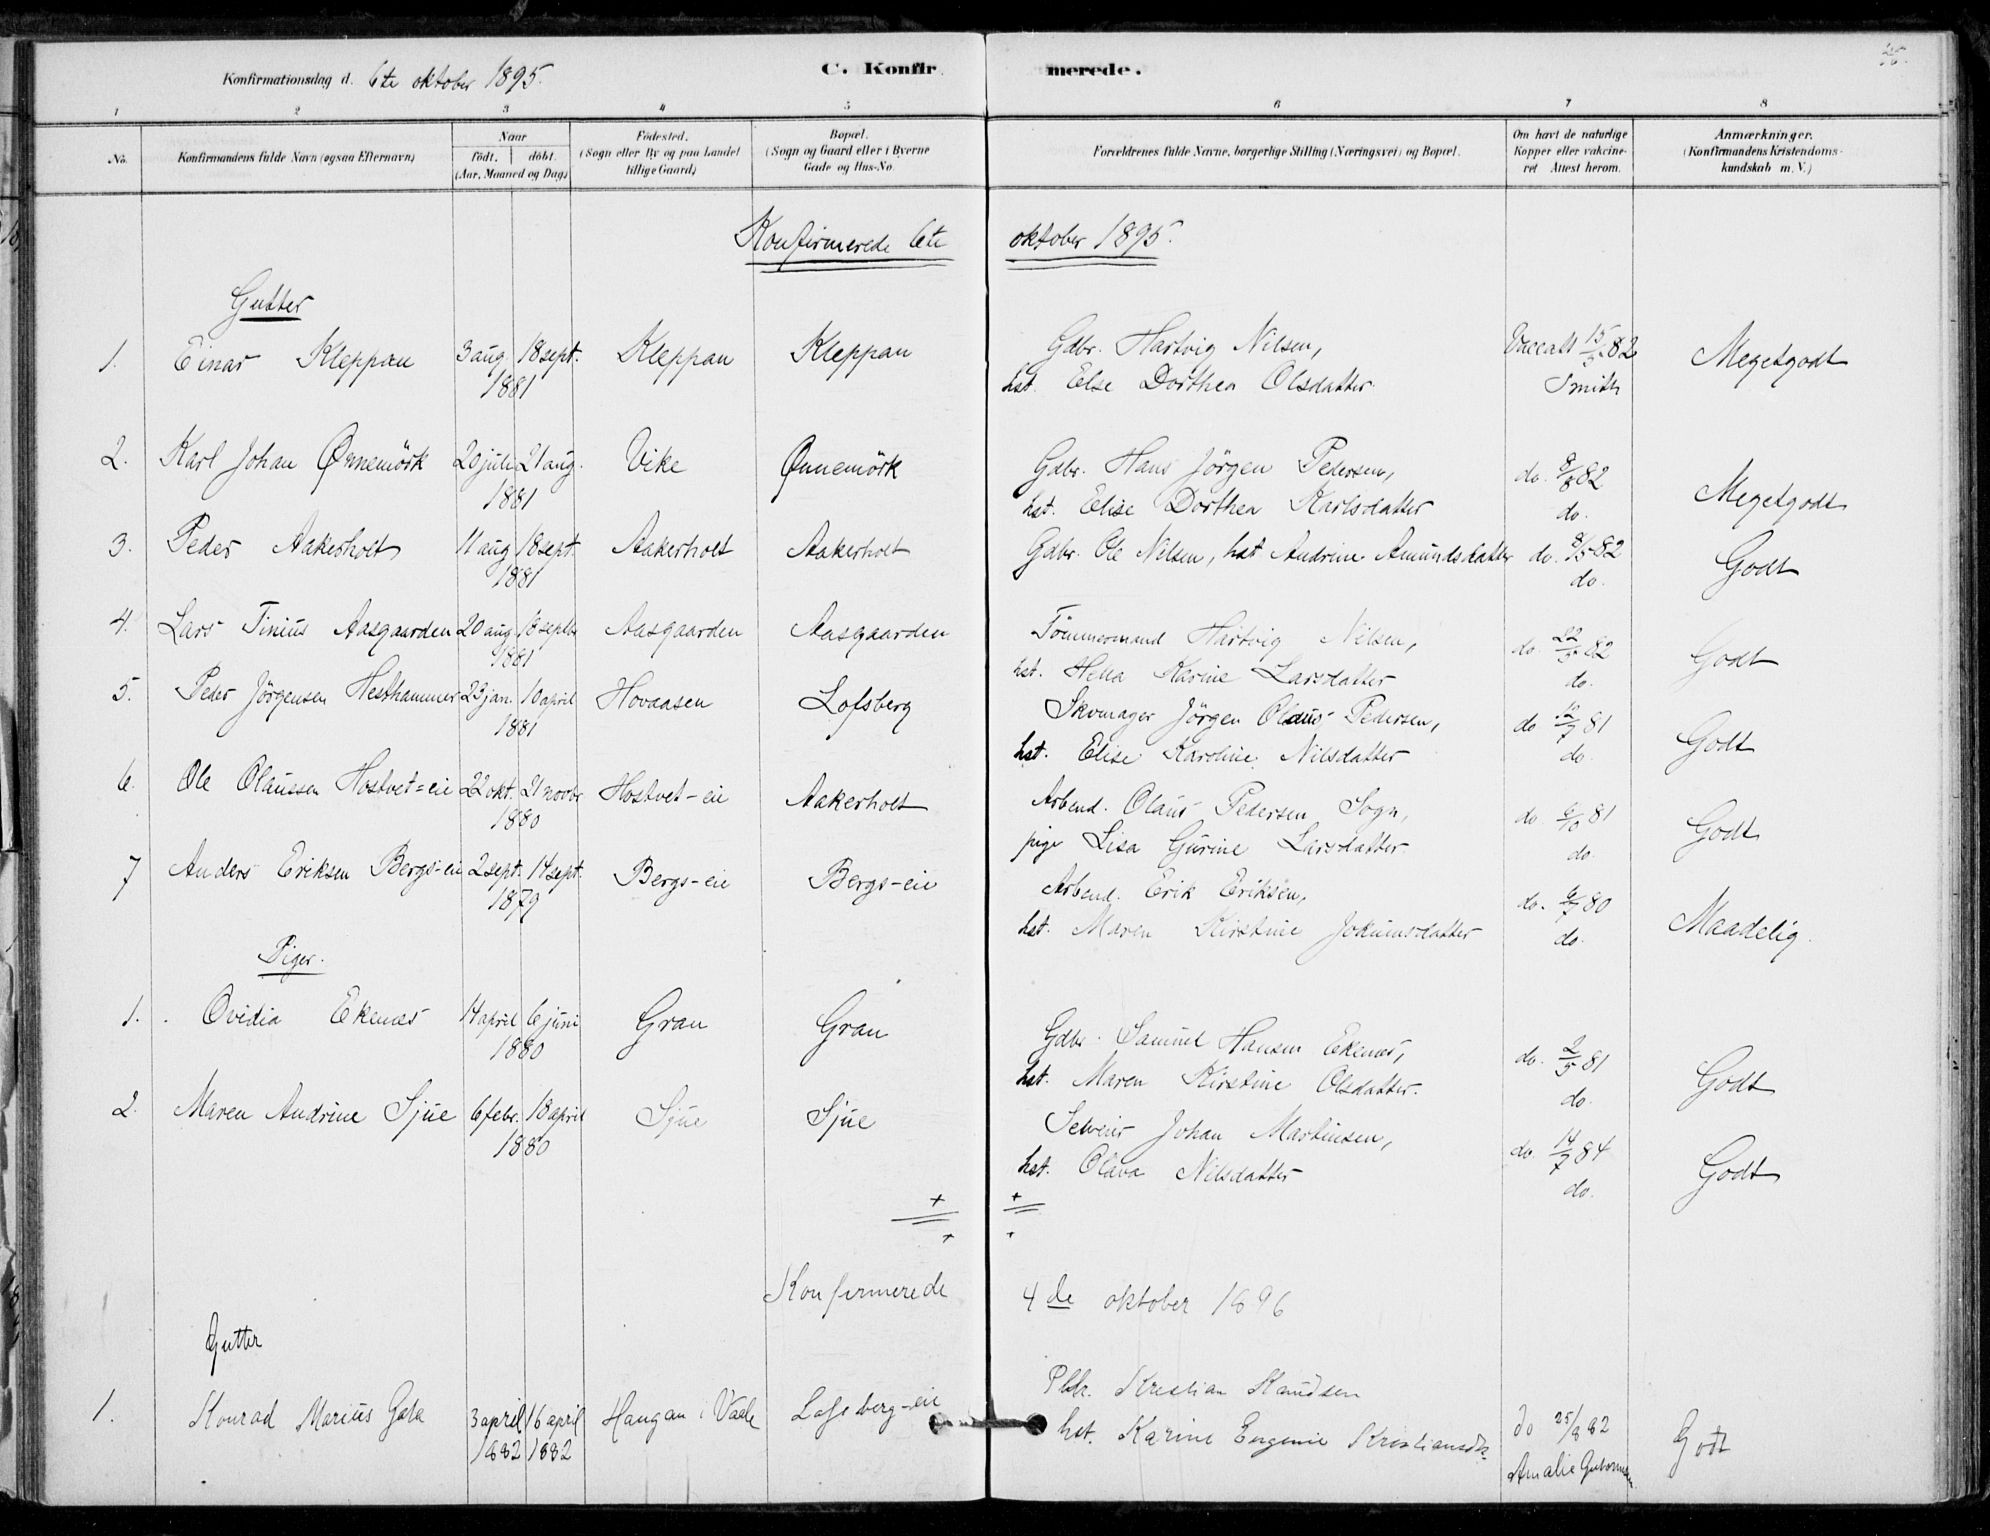 Konfirmationsdag d. 6te oktober 1895.
C. Konfirmerede.
1 2 3 4 5 6 7 8
No.
Konfirmandens fulde Navn (ogsaa Efternavn)
Naar
födt. döbt.
(Aar, Maaned og Dag)
Födested.
(Sogn eller By og paa Landet
tillige Gaard)
Bopæl.
(Sogn og Gaard eller i Byerne
Gade og Hus-No.
Forældrenes fulde Navne, borgerlige Stilling (Næringsvei) og Bopæl.
Om havt de naturlige
Kopper eller vakcine-
ret Attest herom.
Anmærkninger.
(Konfirmandens Kristendoms-
kundskab m. V.)
Konfirmerede 6te oktober 1895.
Gutter
1. Einar Kleppan 3 aug. 18 sept. 1881 Kleppan Kleppan Gdbr. Hartvig Nilsen,
hst. Else Dorthea Olsdatter. 15/5 82 Smith Megetgodt
2. Karl Johan Ønnemörk 20 juli 21 aug. 1881 Vike Ønnemörk Gdbr. Hans Jörgen Pedersen,
hst. Elise Dorthea Karlsdatter do. 8/8 82 do. Megetgodt
3. Peder Aakerholt 11 aug 18 sept. 1881 Aakerholt Aakerholt Gdbr. Ole Nilsen, hst Andrine Amundsdatter do. 8/5 82 do. Godt
4. Lars Tinius Aasgaarden 20 aug. 18 septbr 1881 Aasgaarden Aasgaarden Tömmermand Hartvig Nilsen,
hst. Hella Karine Larsdatter do. 22/5 82 do. Godt
5. Peder Jörgensen Hesthammer 23 jan. 10 april 1881 Hovaasen Lofsberg Skomager Jörgen Olaus Pedersen,
hst. Elise Karoline Nilsdatter do 12/7 81 do. Godt
6. Ole Olaussen Hostvet-eie 22 okt. 21 novbr 1880 Hostvet-eie Aakerholt Arbend. Olaus Pedersen Sogn,
pige Lisa Gurine Larsdatter. do. 6/10 81 do. Godt
7 Anders Eriksen Bergs-eie 2 sept. 14 sept. 1879 Bergs-eie Bergs-eie Arbend. Erik Eriksen,
hst. Maren Kirstine Jokumsdatter do. 6/7 80 do. Maadelig.
Piger.
1. Ovidia Ekenæs 14 april 6 juni 1880 Gran Gran Gdbr. Samuel Hansen Ekenæs,
hst. Maren Kirstine Olsdatter. do. 2/5 81 do. Godt
2. Maren Andrine Sjue 6 febr. 18 april 1880 Sjue Sjue Selveier Johan Martinsen,
hst. Olava Nilsdatter do. 14/7 84 do. Godt
Konfirmerede 4de oktober 1896
Gutter
1. Konrad Marius Gata 3 april 1882 16 april 1882 Haugan i Vaale Lofsberg-eie Kristian Knudsen
hst. Karine Eugenie Kristiansdtr do 25/8 82 Amalie Godt